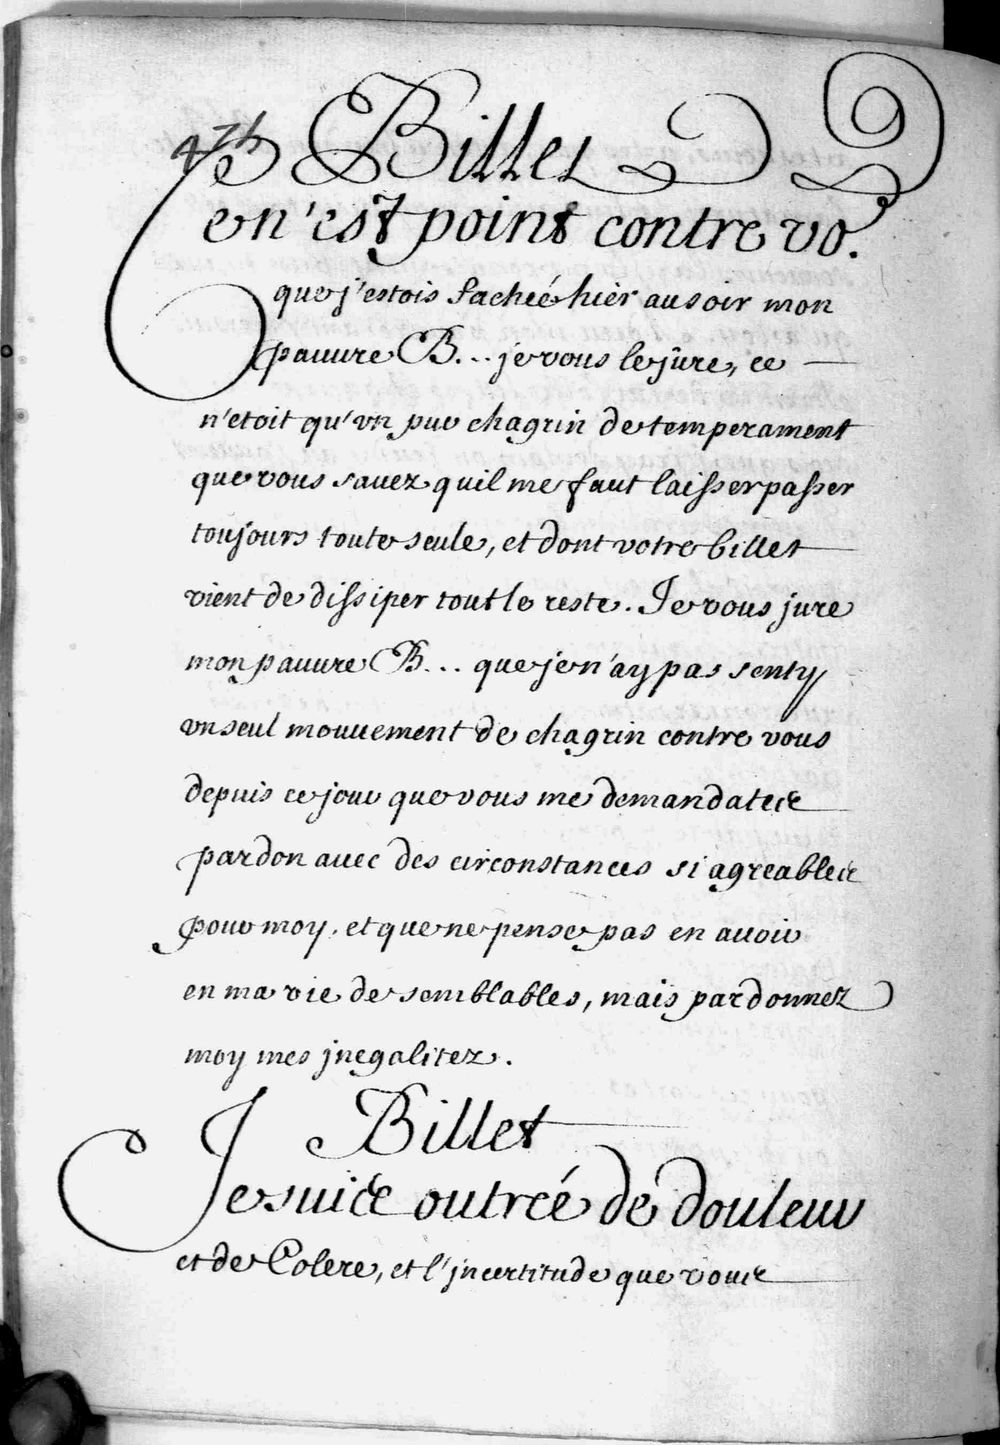 Billet
Ce n'est point contre vo.
que j'estois fachée hier au soir mon
pauure B... je vous le jûre, ce
n'etoit qu'vn pur chagrin de temperament
que vous sauez quil me faut laisser passer
toujours toute seule, et dont votre billet
vient de dissiper tout le reste. Je vous jure
mon pauure B... que je n'ay pas senty
vn seul mouuement de chagrin contre vous
depuis ce jour que vous me demandates
pardon auec des circonstances si agreables
pour moy, et que ne pense pas en auoir
en ma vie de semblables, mais pardonnez
moy mes jnegalitez.
Billet
Je suis outrée de douleur
et de Colere, et l'jncertitude que vous